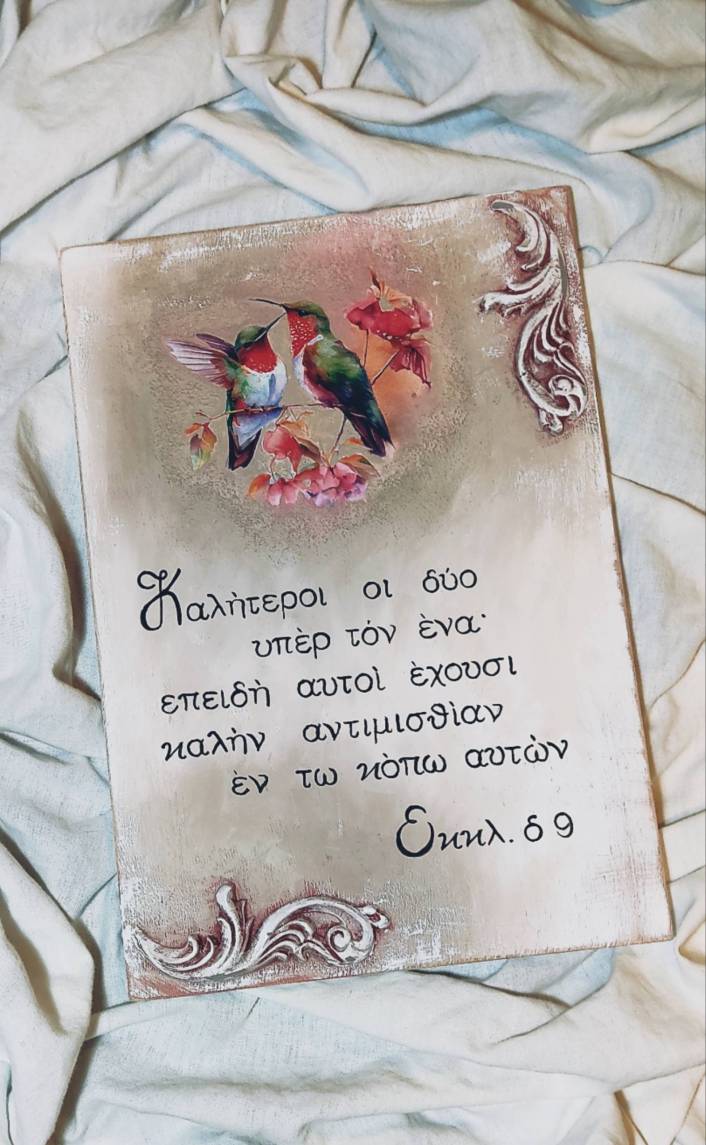 Καλὴτεροι οι δύο
υπὲρ τόν ὲνα·
επειδὴ αυτοὶ ὲχουσι
καλὴν αντιμισθὶαν
ὲν τω κὸπω αυτὼν
Εκκλ. δ 9